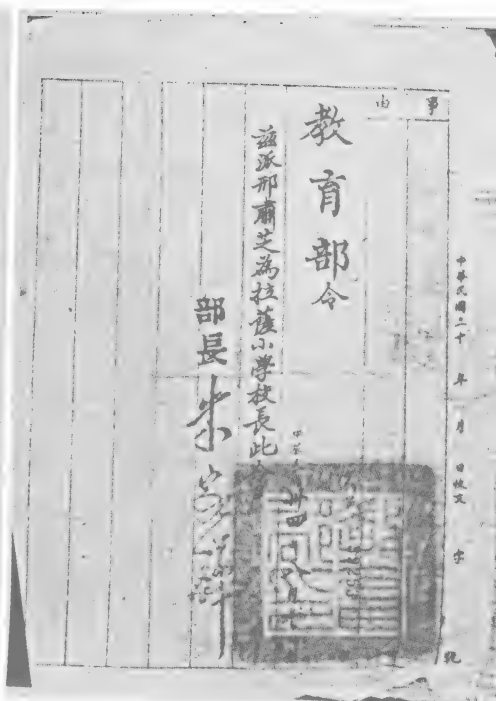 中華民國二十 年 月 日收文 字 號
事由
教育部令
茲派邢肅芝為拉薩小學校長此令
卅四
部長朱家驊